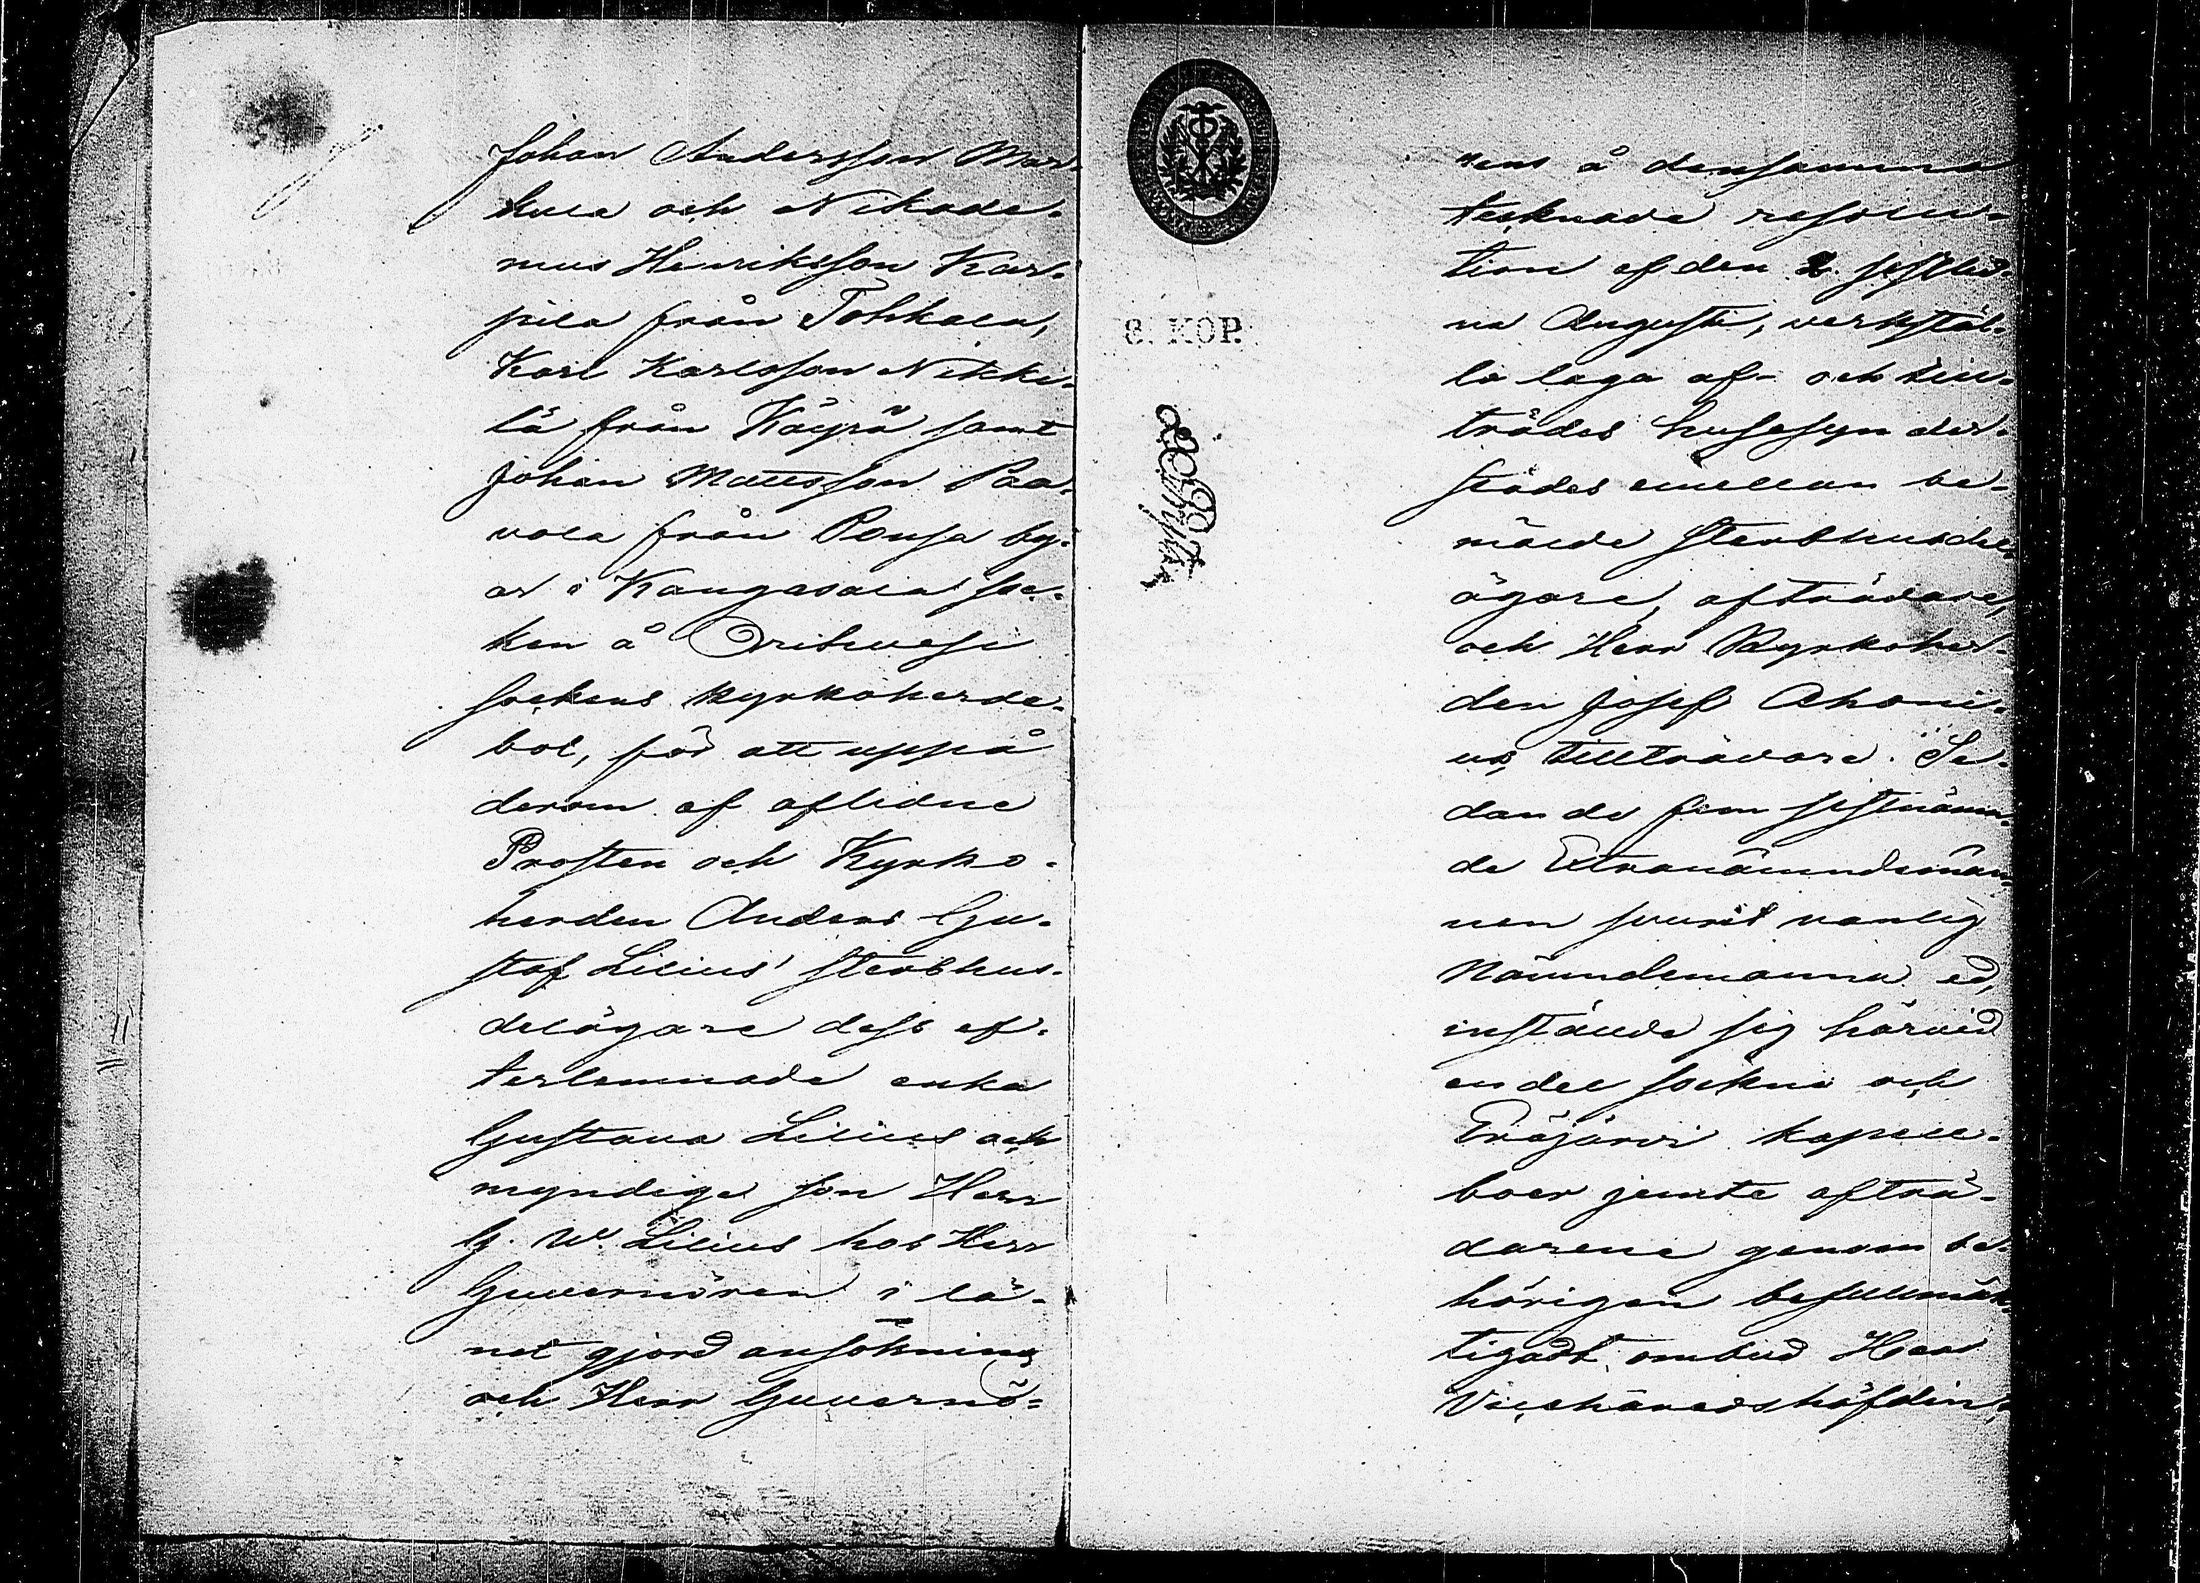 Johan Andersson Mar-
kula och Nikode-
mus Henriksson Kar-
pila från Tohkala,
Karl Karlsson Nikki-
lä från Käyrä samt
Johan Mattsson Paa-
vola från Ponsa by-
ar i Kangasala soc-
ken å Orihvesi
sockens kyrkoherde-
bol, för att uppå
derom af aflidne
Prosten och Kyrko-
herden Anders Gu-
staf Lilius' sterbhus-
delägare dess ef-
terlemnade enka
Gustava Lilius och
myndige son Herr
G. W. Lilius hos Herr
Guvernören i lä-
net gjord ansökning
och Herr Guvernö-
8. KOP.
rens å densamma
tecknade resolu-
tion af den 2 sistlid-
na Augusti, verkstäl-
la laga af- och till-
trädes husesyn der-
städes emellan be-
mälde sterbhusdel-
ägare, afträdare,
och Herr Kyrkoher-
den Josef Ahoni-
us, tillträdare. Se-
dan de fem sistnämn-
de Extranämndemän-
nen svurit vanlig
Nämndemanna ed,
instälde sig härvid
en del sockne och
Eräjärvi kapell-
boer jemte afträ-
darene genom be-
hörigen befullmäk-
tigadt ombud Herr
Vicehäradshöfdin-